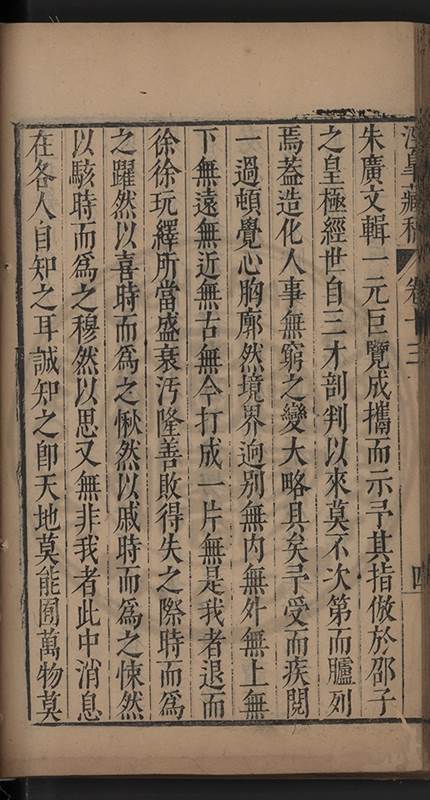 涇皋藏稿 卷十三 四
朱廣文輯一元巨覽成攜而示予其指倣於邵子
之皇極經世自三才剖判以來莫不次第而臚列
焉蓋造化人事無窮之變大略具矣予受而疾閱
一過頓覺心胸廓然境界逈別無内無外無上無
下無遠無近無古無今打成一片無是我者退而
徐徐玩繹所當盛衰汚隆善敗得失之際時而爲
之躍然以喜時而爲之愀然以戚時而爲之悚然
以駭時而爲之穆然以思又無非我者此中消息
在各人自知之耳誠知之卽天地莫能囿萬物莫